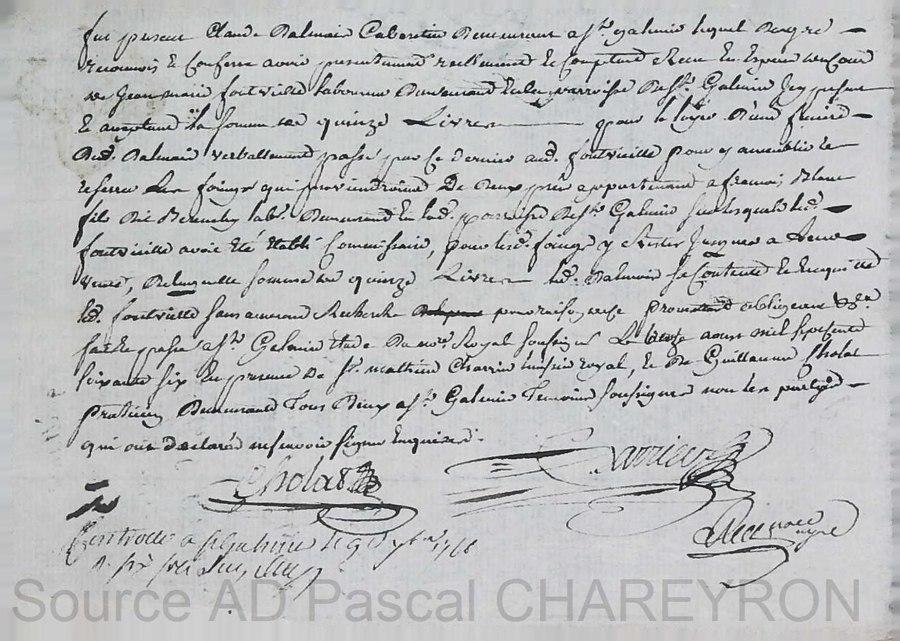 fut present Claude Balmain Cabaretier Demeurant a St. galmier lequel De gré
reconnoit & Confesse avoir presentement reellement & Comptant Receu En Especes au Cours
de Jean marie fontvieille laboureur Demeurant parroisse De St. Galmier Icy present
& acceptant la somme de quinze Livres pour le loyer D'une feniere
Dud. Balmain verballement passé par Ce dernier aud. fontvieille pour y
les foings qui De Deux prés appartenant a francois
fils labr. Demeurant En lad. parroisse De St. Galmier led.
fontvieille avoit été établi Commissaire, pour lesd. foings y Rester Jusques a Leur
vente, De laquelle somme de quinze Livres led. Balmain Se Contente & En quitte
led. fontvieille sans aucune Recherche pour raison de ce promettant obligeant &a
fait & passé a St. Galmier Etude Du nre. Royal soussigné Le aout mil sept cent
soixante six En presence De Sr. mathieu huissier royal, & De Guillaume Cholat
praticien Demeurants Tous Deux a St. Galmier Temoins soussignes non les parties
qui ont declaré ne scavoir signer Enquises.
Cholat
nore
royal
Controllé a St Galmier le 7bre 1766
Source AD Pascal CHAREYRON